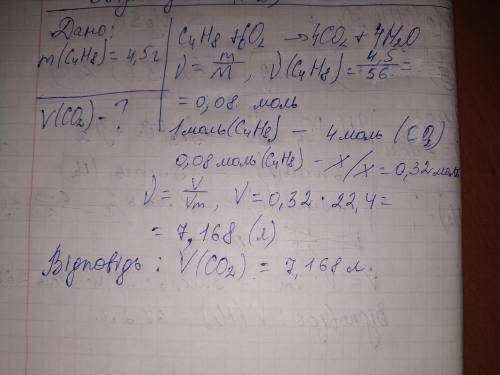 Дано:
m(C₄H₈) = 4,5 г
V(CO₂) - ?
C₄H₈ + 6O₂ → 4CO₂ + 4H₂O
ν = m/M, ν(C₄H₈) = 4,5/56 =
= 0,08 моль
1 моль (C₄H₈) — 4 моль (CO₂)
0,08 моль (C₄H₈) - x / x = 0,32 моль
ν = V/Vm, V = 0,32 · 22,4 =
= 7,168 (л)
Відповідь: V(CO₂) = 7,168 л.